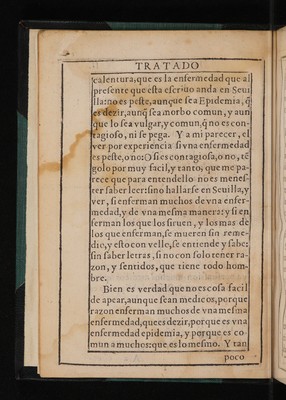 TRATADO
calentura, que es la enfermedad que al
presente que esta escriuo anda en Seui
lla: no es peste, aunque sea Epidemia, q̃
es dezir, aunq̃ sea morbo comun, y aun
que lo sea vulgar, y comun, q̃ no es con-
tagioso, ni se pega. Y a mi parecer, el
ver por experiencia si vna enfermedad
es peste, o no: O si es contagiosa, o no, tẽ
golo por muy facil, y tanto, que me pa-
rece que para entendello no es menes-
ter saber leer: sino hallarse en Seuilla, y
ver, si enferman muchos de vna enfer-
medad, y de vna mesma manera: y si en
ferman los que los siruen, y los mas de
los que enferman, se mueren sin reme-
dio, y esto con velle, se entiende y sabe:
sin saber letras, si no con solo tener ra-
zon, y sentidos, que tiene todo hom-
bre.
Bien es verdad que no es cosa facil
de apear, aunque sean medicos, porque
razon enferman muchos de vna mesma
enfermedad, que es dezir, porque es vna
enfermedad epidemia, y porque es co-
mun a muchos: que es lo mesmo. Y tan
poco